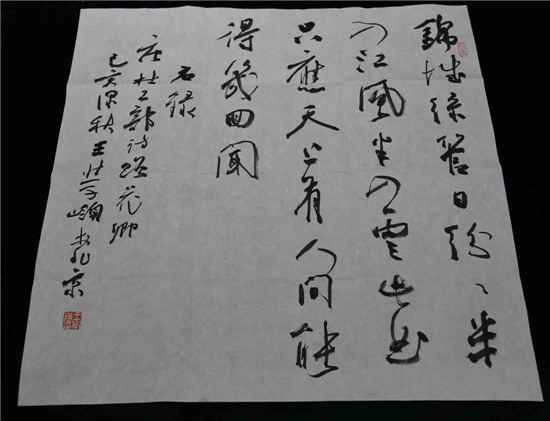 錦城絲管日紛〻半
入江風半入雲此曲
只應天上有人间能
得幾回聞
右録
唐杜工部诗贈花卿
己亥深秋王學嶺书北京